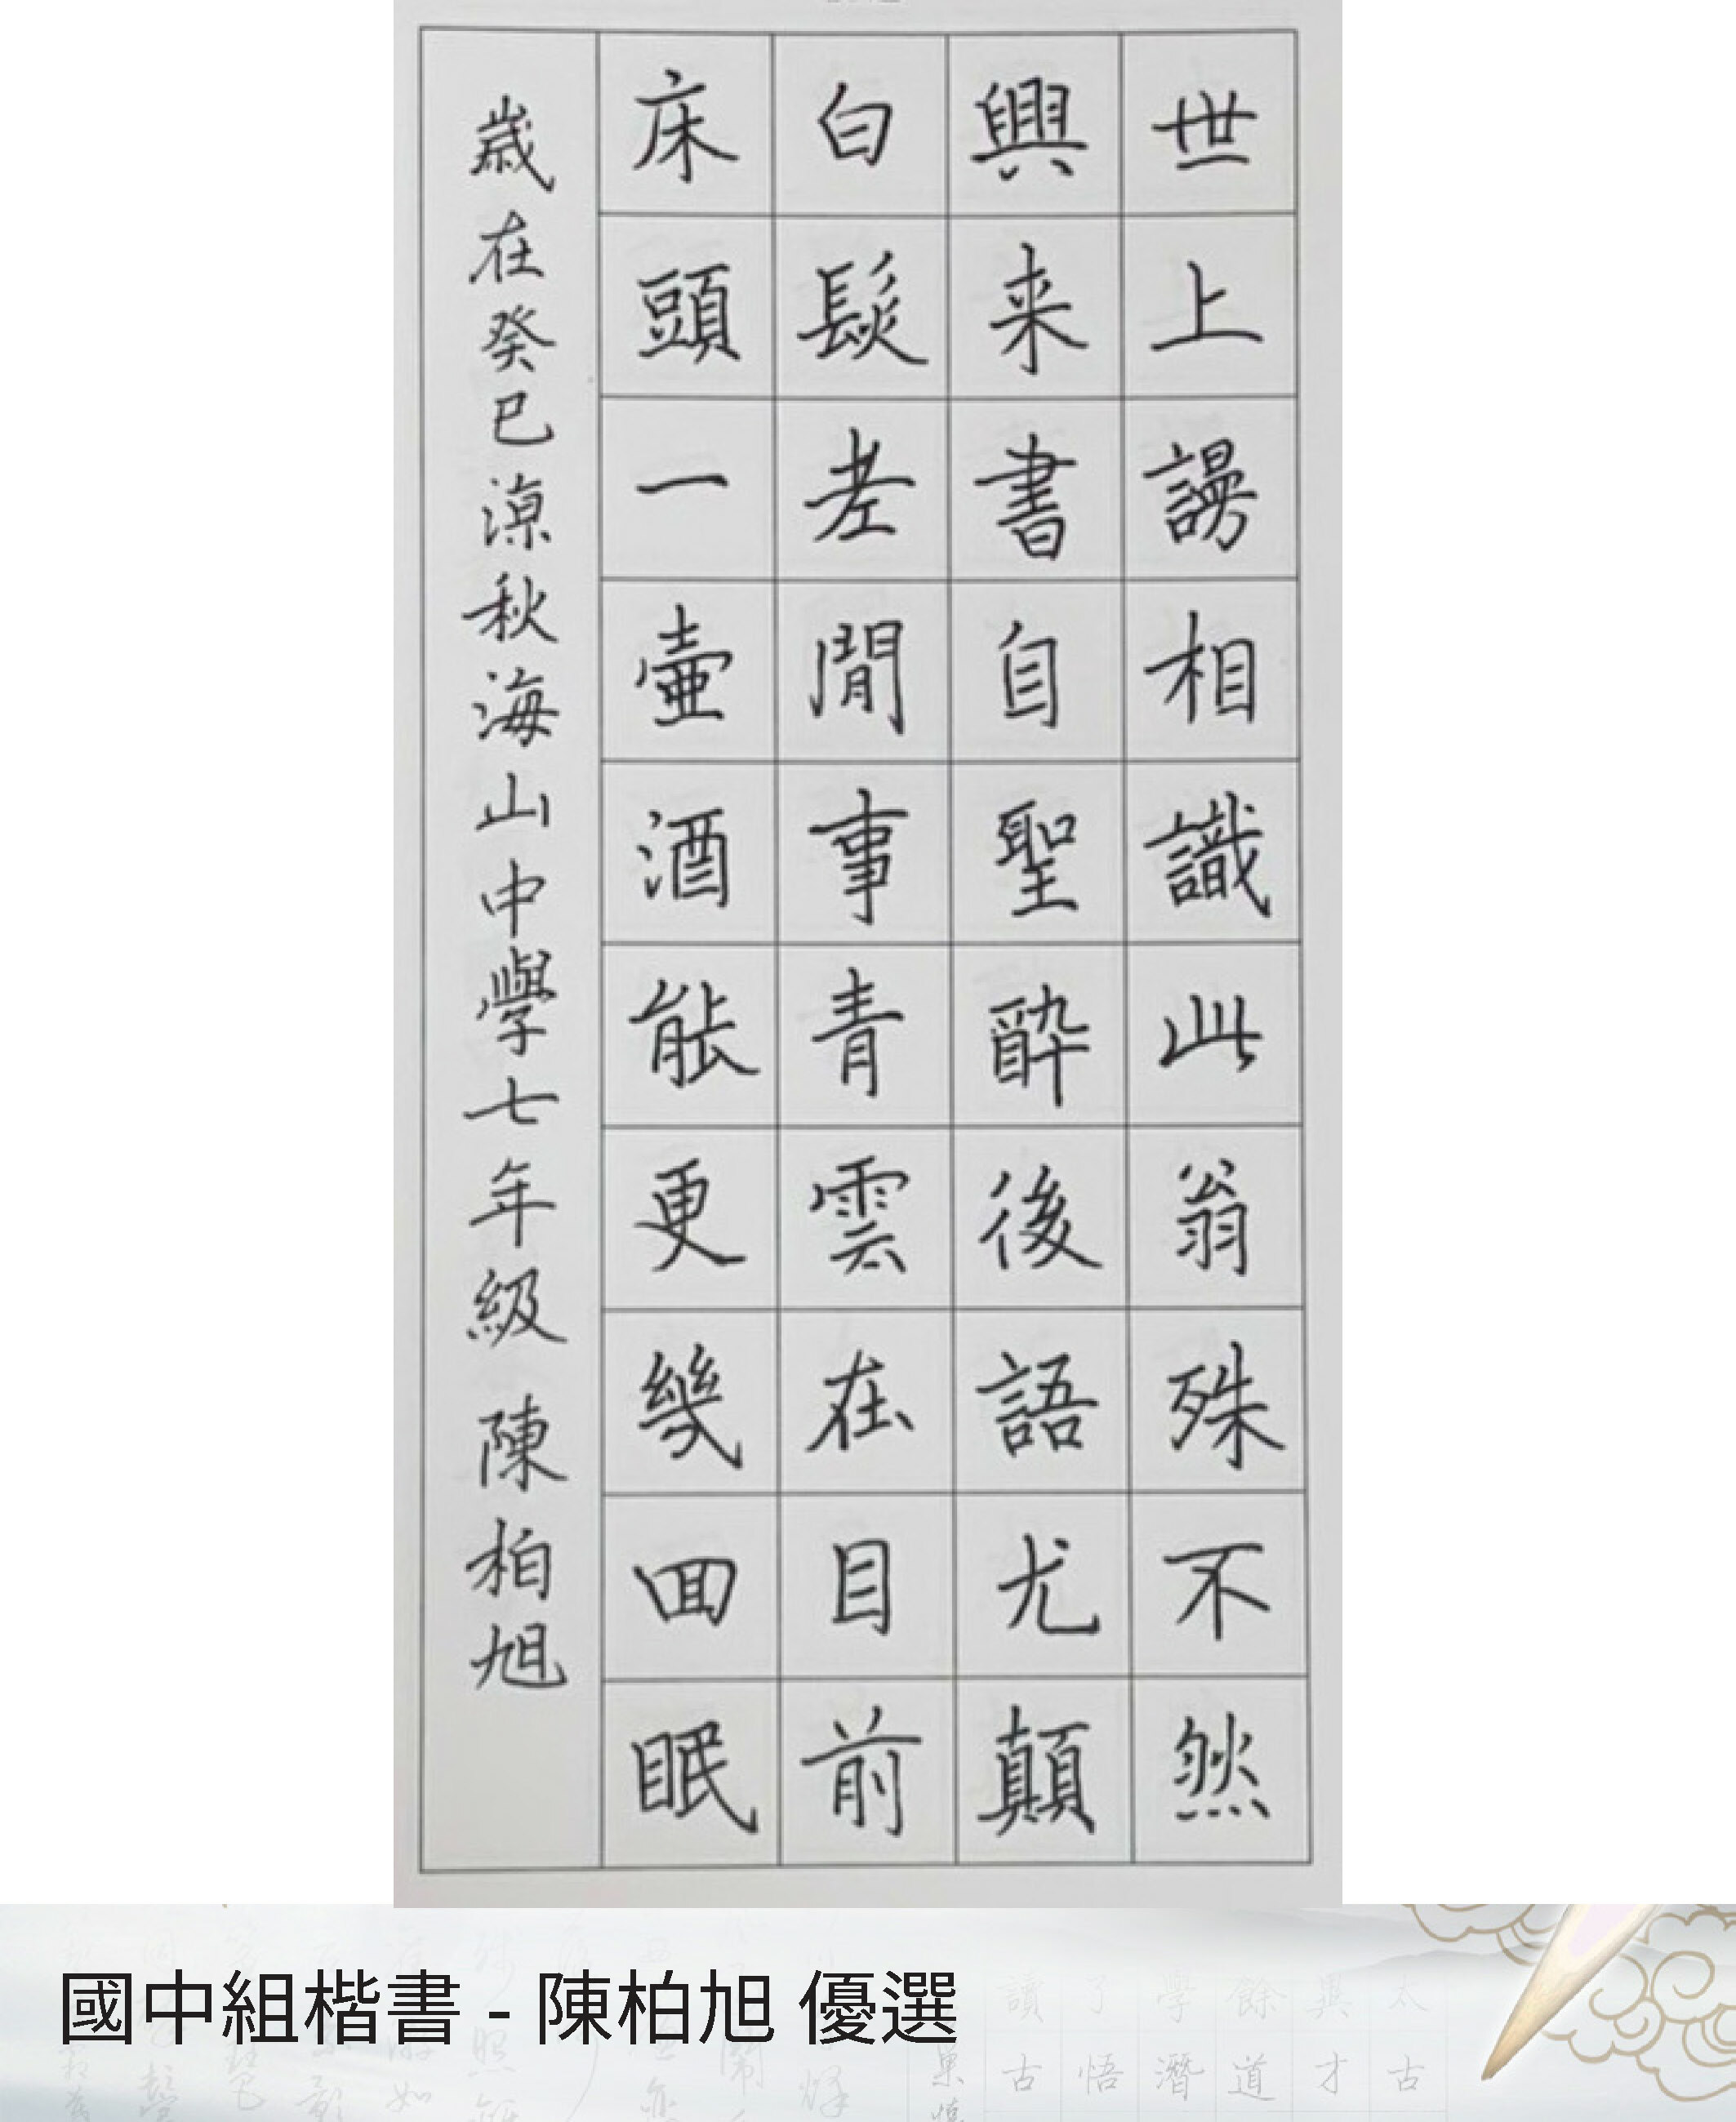 世上謾相識此翁殊不然
興来書自聖醉後語尤顛
白髮老閒事青雲在目前
床頭一壷酒能更幾回眠
歲在癸巳涼秋海山中學七年級 陳柏旭
國中組楷書 - 陳柏旭 優選